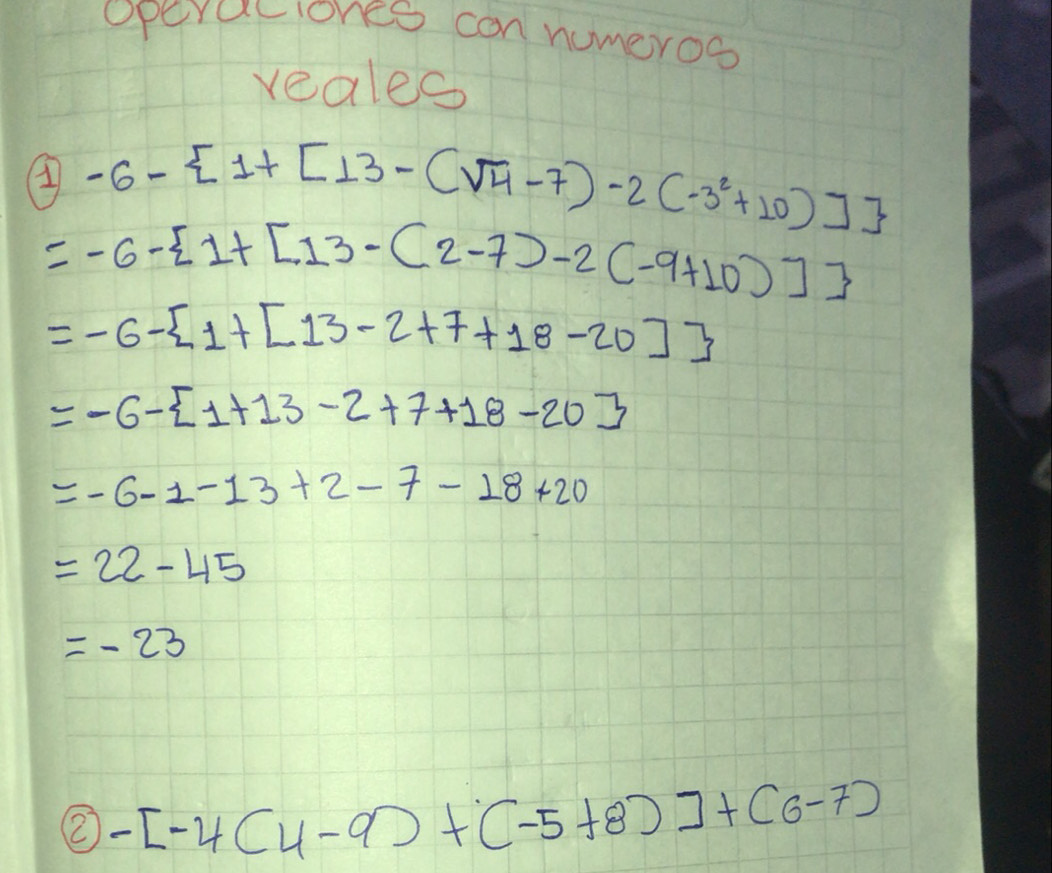 operaciones con numeros
reales
① -6-{1+[13-(√4-7)-2(-3²+10)]}
=-6-{1+[13-(2-7)-2(-9+10)]}
=-6-{1+[13-2+7+18-20]}
=-6-{1+13-2+7+18-20}
=-6-1-13+2-7-18+20
=22-45
=-23
② -[-4(4-9)+(-5+8)]+(6-7)